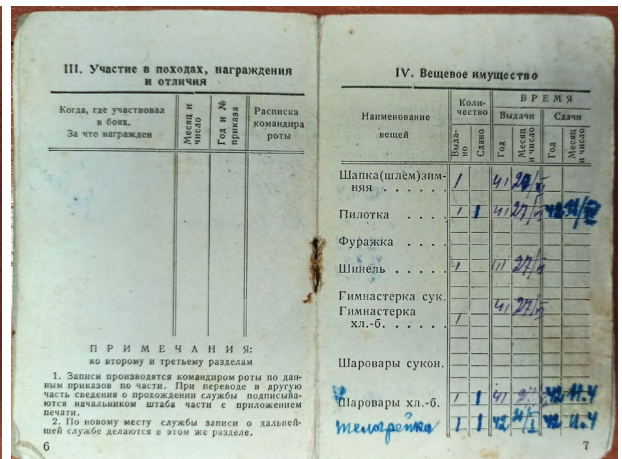 III. Участие в походах, награждения
и отличия
Когда, где участвовал
в боях.
За что награжден
Месяц и
число
Год и №
приказа
Расписка
командира
роты
ПРИМЕЧАНИЯ:
ко второму и третьему разделам
1. Записи производятся командиром роты по дан-
ным приказов по части. При переводе в другую
часть сведения о прохождении службы подписыва-
ются начальником штаба части с приложением
печати.
2. По новому месту службы записи о дальней-
шей службе делаются в этом же разделе.
6
IV. Вещевое имущество
Наименование
вещей
Коли-
чество
ВРЕМЯ
Выдачи
Сдачи
Выда-
но
Сдано
Год
Месяц
и число
Год
Месяц
и число
Шапка(шлем)зим-
няя . . . . . 1 41
Пилотка . . . . 1 1 41 27/ 42
Фуражка . . . .
Шинель . . . . 1 27/
Гимнастерка сук.
Гимнастерка 41 27/
хл.-б. . . . . . 1
Шаровары сукон.
Шаровары хл.-б. 1 1 41 42 11.4
телогрейка 1 1 42 42 11.4
7